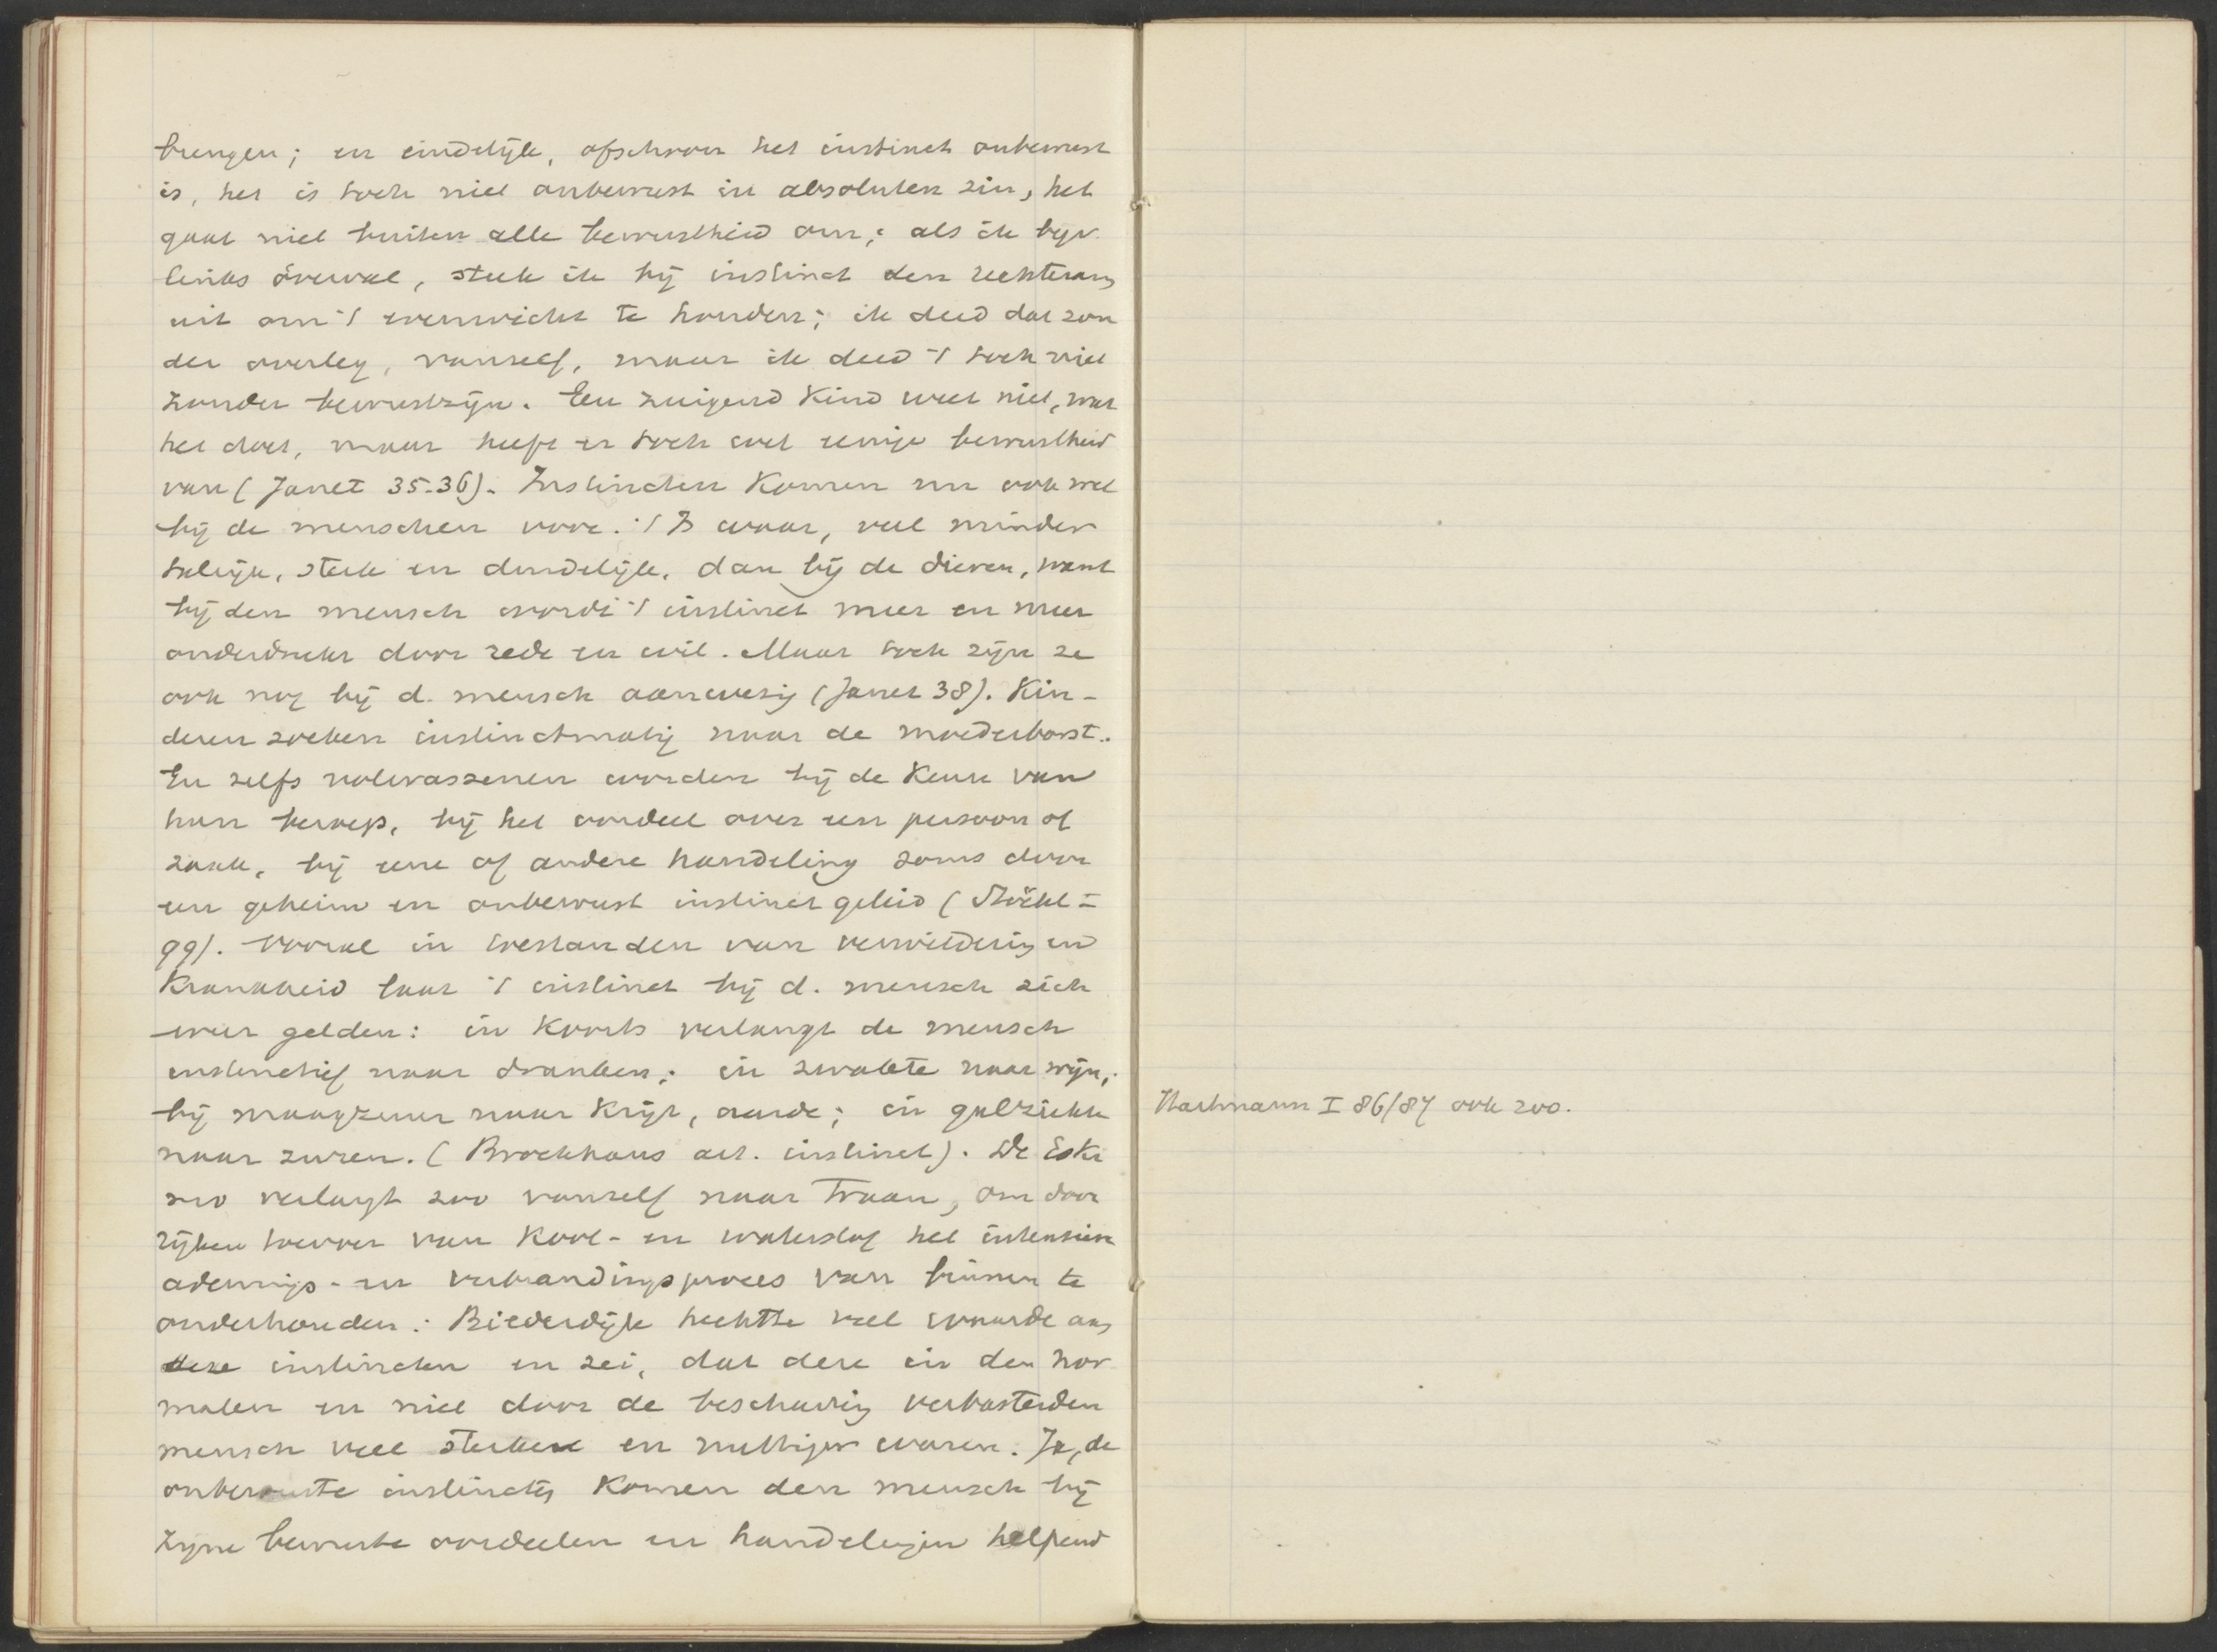 brengen; en eindelijk, ofschoon het instinct onbewust
is, het is toch niet onbewust in absoluten zin, het
gaat niet buiten alle bewustheid om; als ik bijv.
links overval, steek ik bij instinct den rechterarm
uit om 't evenwicht te houden; ik deed dat zon
der overleg, vanself, maar ik deed 't toch niet
zonder bewustzijn. Een zuigend Kind weet niet, wat
het doet, maar heeft er toch wel eenige bewustheid
van (Janet 35-36). Instincten Komen nu ook wel
bij de menschen voor. 't Is waar, veel minder
talrijk, sterk en duidelijk, dan bij de dieren, want
bij den mensch wordt 't instinct meer en meer
onderdrukt door rede en wil. Maar toch zijn ze
ook nog bij d. mensch aanwezig (Janet 38). Kin-
deren zoeken instinctmatig naar de moederborst.
En zelfs volwassenen worden bij de Keuze van
hun beroep, bij het oordeel over een persoon of
zaak, bij eene of andere handeling soms door
een geheim en onbewust instinct geleid (Stöckl I
99). Vooral in toestanden van verwildering en
Krankheid laat 't instinct bij d. mensch zich
weer gelden: in Koorts verlangt de mensch
instinctief naar dranken; in zwakte naar wijn;
bij maagzuur naar Krijt, aarde; in galziekte
naar zuren. (Brockhaus art. instinct). De Eski
mo verlangt zoo vanself naar Traan, om door
rijken toevoer van Kool- en waterstof het intensieve
ademings- en verbrandingsproces van binnen te
onderhouden. Bilderdijk hechtte veel waarde aan
deze instincten en zei, dat deze in den nor
malen en niet door de beschaving verbasterden
mensch veel sterker en nuttiger waren. Ja, de
onbewuste instincten Komen den mensch bij
zijne bewuste oordeelen en handelingen helpend
Hartmann I 86/87 ook 200.